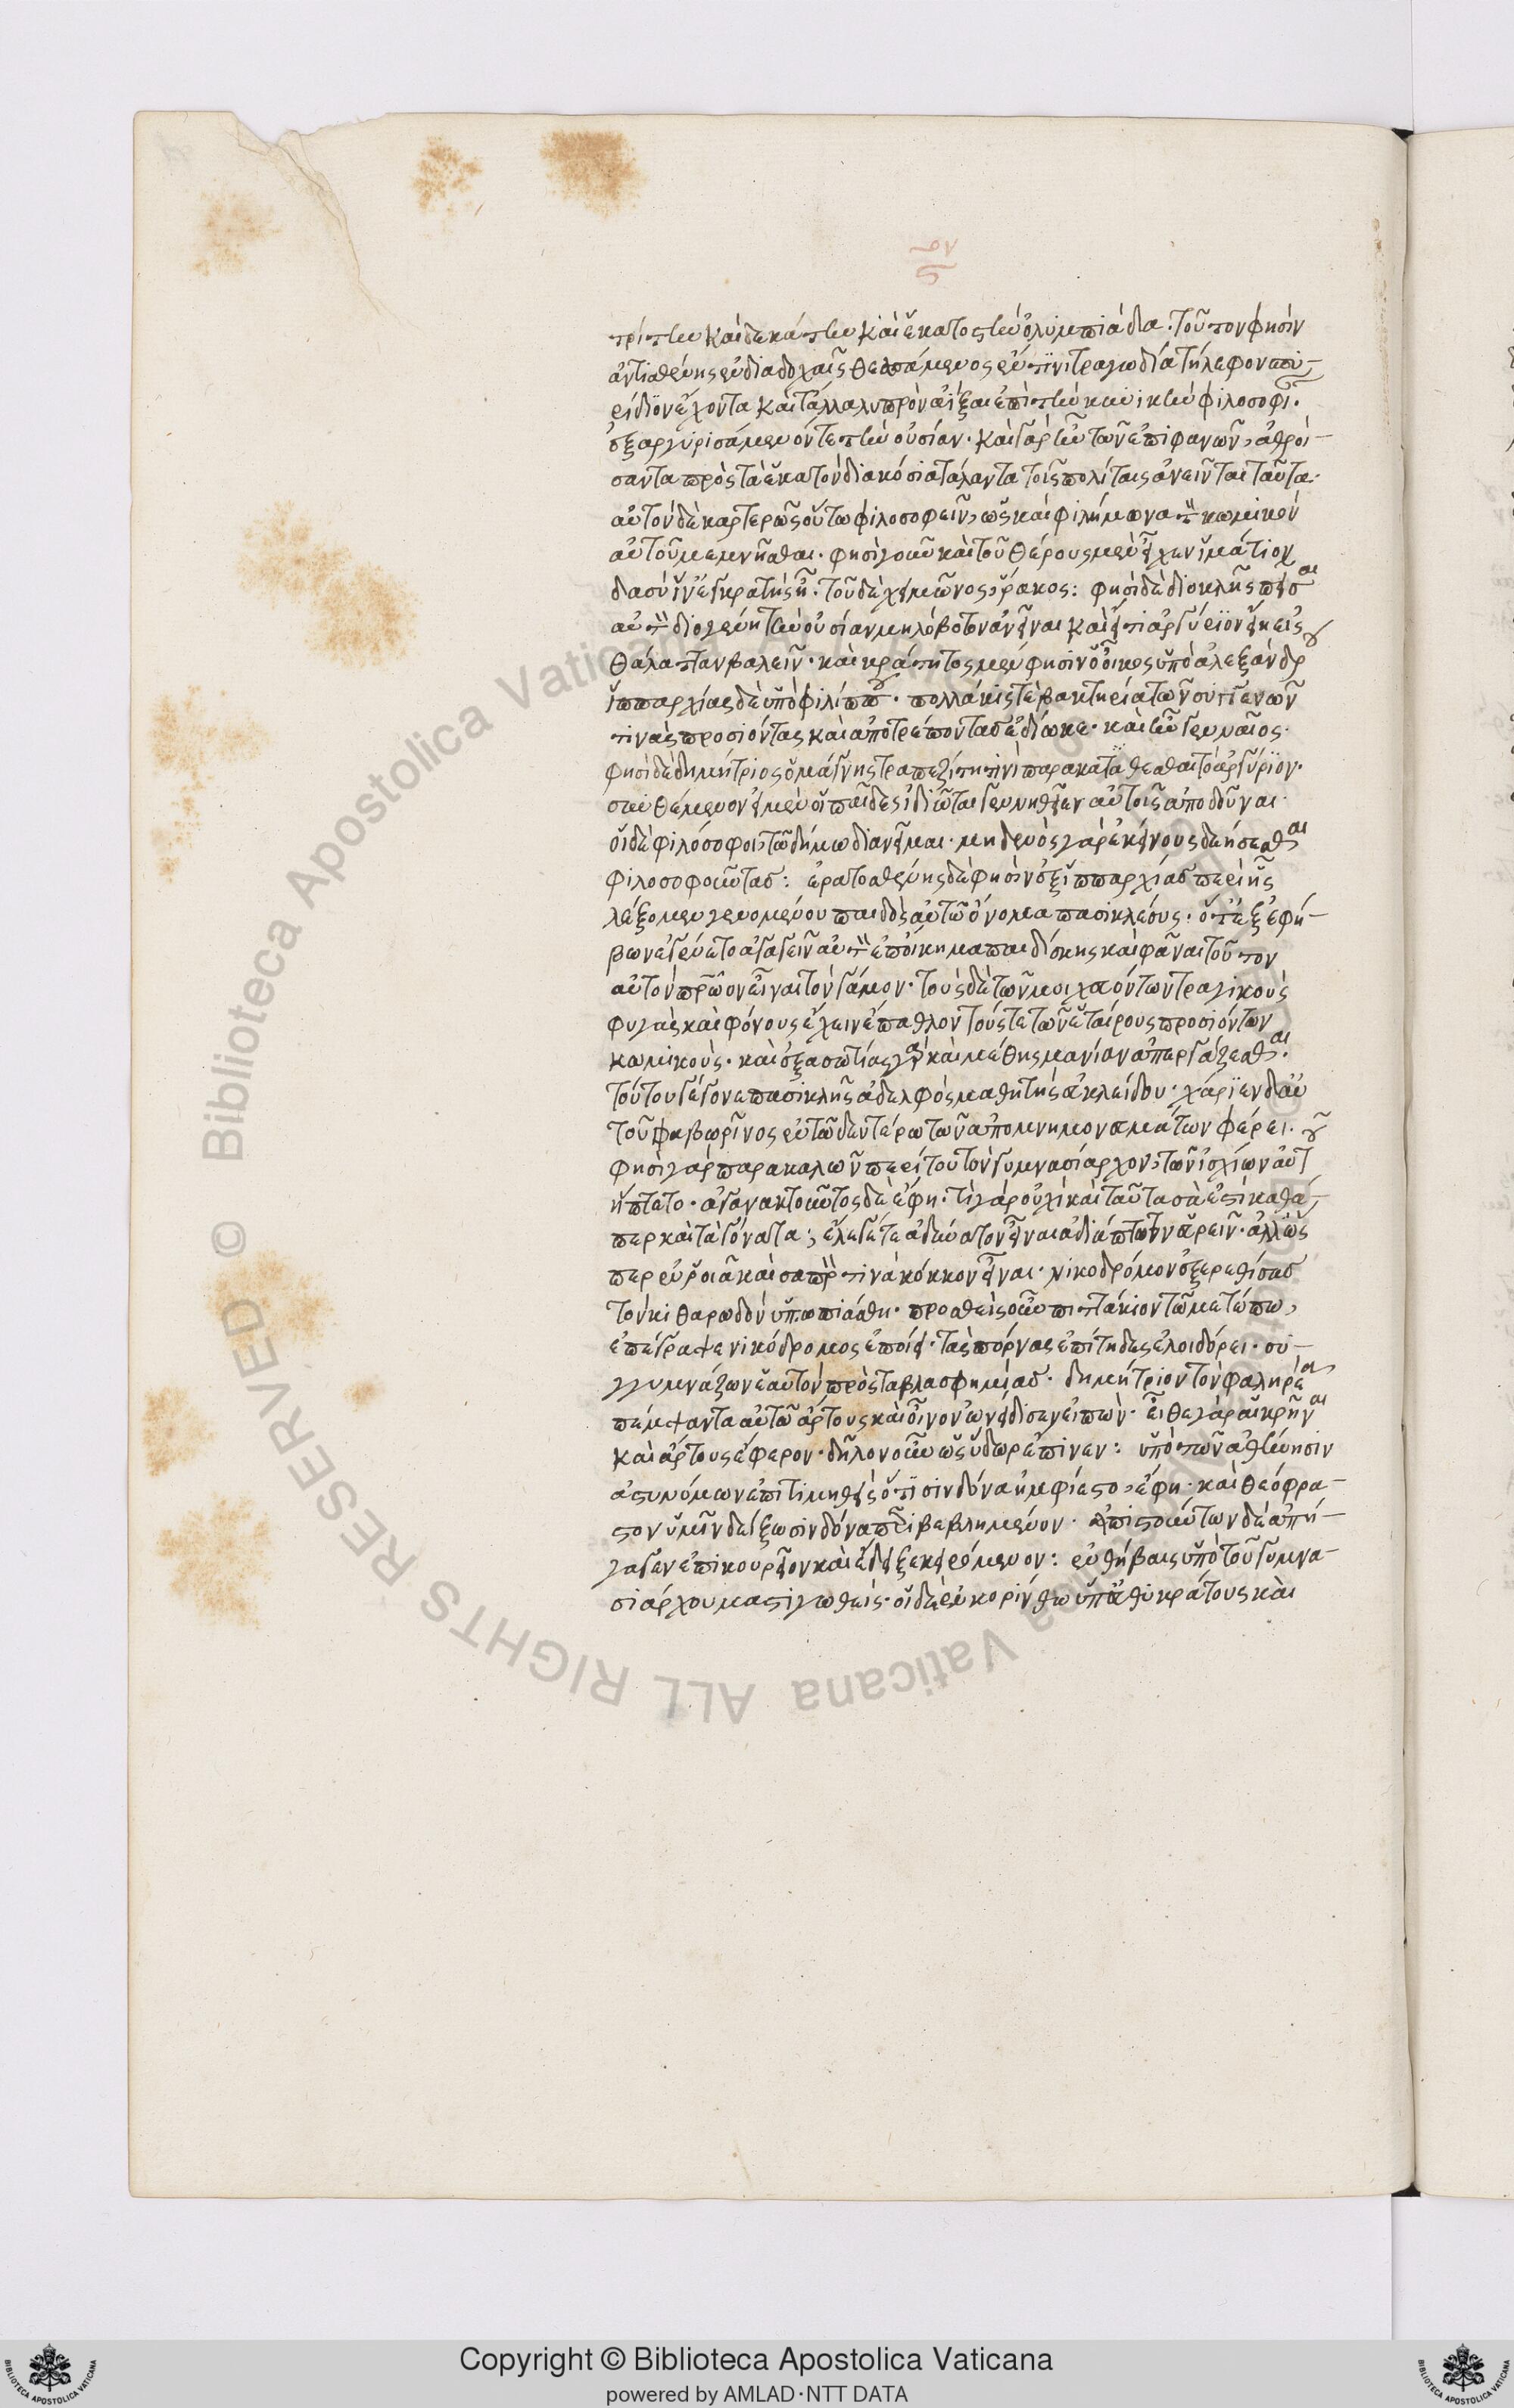 τρίτην καὶ δεκάτην καὶ ἑκατοστὴν ὀλυμπιάδα. τοῦτον φησὶν
ἀντισθένης ἐν διαδοχαῖς θεασάμενος ἔν τινι τραγωδία τήλεφον σπυ-
ρίδιον ἔχοντα καὶ τἄλλα λυπρὸν ἀίξαι ἐπὶ τὴν κυνικὴν φιλοσοφί.
ἐξαργυρισάμενόν τε τὴν οὐσίαν. καὶ γὰρ ἦν τῶν ἐπιφανῶν, ἀθροί-
σαντα πρὸς τὰ ἑκατὸν διακόσια τάλαντα τοῖς πολίταις ἀνεῖνται ταῦτα.
αὐτὸν δὲ καρτερῶς οὕτω φιλοσοφεῖν, ὡς καὶ φιλήμονα τὸν κωμικὸν
αὐτοῦ μεμνῆσθαι. φησὶ γοῦν καὶ τοῦ θέρους μὲν εἶχεν ἱμάτιον
δασὺ ἵν' ἐγκρατὴς ἦ. τοῦ δὲ χειμῶνος, ῥάκος: φησὶ δὲ διοκλῆς πεῖσαι
αὐτὸν διογένη τὴν οὐσίαν μηλόβοτον ἀνεῖναι καὶ εἴ τι ἀργύριον εἴη εἰς
θάλατταν βαλεῖν. καὶ κράτητος μὲν φησὶν ὁ οἶκος ὑπὸ ἀλεξάνδρου
ἱππαρχίας δὲ ὑπὸ φιλίππου. πολλάκις τε βακτηρία τῶν συγγενῶν
τινὰς προσιόντας καὶ ἀποτρέποντας ἐδίωκε. καὶ ἦν γενναῖος.
φησὶ δὲ δημήτριος ὁ μάγνης τραπεζίτη τινὶ παρακαταθέσθαι τὸ ἀργύριον.
συνθέμενον εἰ μὲν οἱ παῖδες ἰδιῶται γεννηθεῖεν αὐτοῖς ἀποδοῦναι.
οἱ δὲ φιλόσοφοι, τῶ δήμω διανεῖμαι. μηδενὸς γὰρ ἐκείνους δεήσεσθαι
φιλοσοφοῦντας: ἐρατοσθένης δὲ φησὶν ἐξ ἱππαρχίας περὶ ἧς
λέξομεν γενομένου παιδὸς αὐτῶ ὄνομα πασικλέους. ὅτ' ἐξ ἐφή-
βων ἐγένετο ἀγαγεῖν αὐτὸν ἐπ' οἴκημα παιδίσκης καὶ φάναι τοῦτον
αὐτὸν πρῶον εἶναι τὸν γάμον. τοὺς δὲ τῶν μοιχαόντων τραγικοὺς
φυγὰς καὶ φόνους ἔχειν ἔπαθλον τούς τε τῶν ἑταίρους προσιόντων
κωμικούς. καὶ ἐξ ἀσωτίας γὰρ καὶ μέθης μανίαν ἀπεργάζεσθαι.
τούτου γέγονε πασικλῆς ἀδελφὸς μαθητὴς εὐκλείδου. χάριεν δ' αὐ
τοῦ φαβωρῖνος ἐν τῶ δευτέρω τῶν ἀπομνημονευμάτων φέρει.
φησὶ γὰρ παρακαλῶν περί του τὸν γυμνασίαρχον, τῶν ἰσχίων αὐτοῦ
ἥπτετο. ἀγανακτοῦντος δὲ ἔφη. τί γὰρ οὐχὶ καὶ ταῦτα σά ἐστι καθά-
περ καὶ τὰ γόνατα; ἔλεγέ τε ἀδύνατον εἶναι ἀδιάπτωτον εὑρεῖν. ἀλλ' ὥς
περ ἐν ῥοιᾶ καὶ σαπρόν τινα κόκκον εἶναι. νικοδρόμον ἐξερεθίσας
τὸν κιθαρωδὸν ὑπωπιάσθη. προσθεὶς οὖν πιττάκιον τῶ μετώπω,
ἐπέγραψε νικόδρομος ἐποίει. τὰς πόρνας ἐπίτηδες ἐλοιδόρει. συ-
γγυμνάζων ἑαυτὸν πρὸς τὰ βλασφημίας. δημήτριον τὸν φαληρέα
πέμψαντα αὐτῶ ἄρτους καὶ οἶνον ὠνείδισεν εἰπών. εἴθε γὰρ αἱ κρῆναι
καὶ ἄρτους ἔφερον. δῆλον οὖν ὡς ὕδωρ ἔπινεν: ὑπὸ τῶν ἀθήνησιν
ἀστυνόμων ἐπιτιμηθεὶς ὅτι σινδόνα ἠμφίεστο, ἔφη. καὶ θεόφρα-
στον ὑμῖν δείξω σινδόνα περιβεβλημένον. ἀπιστούντων δὲ ἀπή-
γαγεν ἐπὶ κουρεῖον καὶ ἔδειξε κειρόμενον: ἐν θήβαις ὑπὸ τοῦ γυμνα-
σιάρχου μαστιγωθείς. οἱ δὲ ἐν κορίνθω ὑπ' εὐθυκράτους καὶ